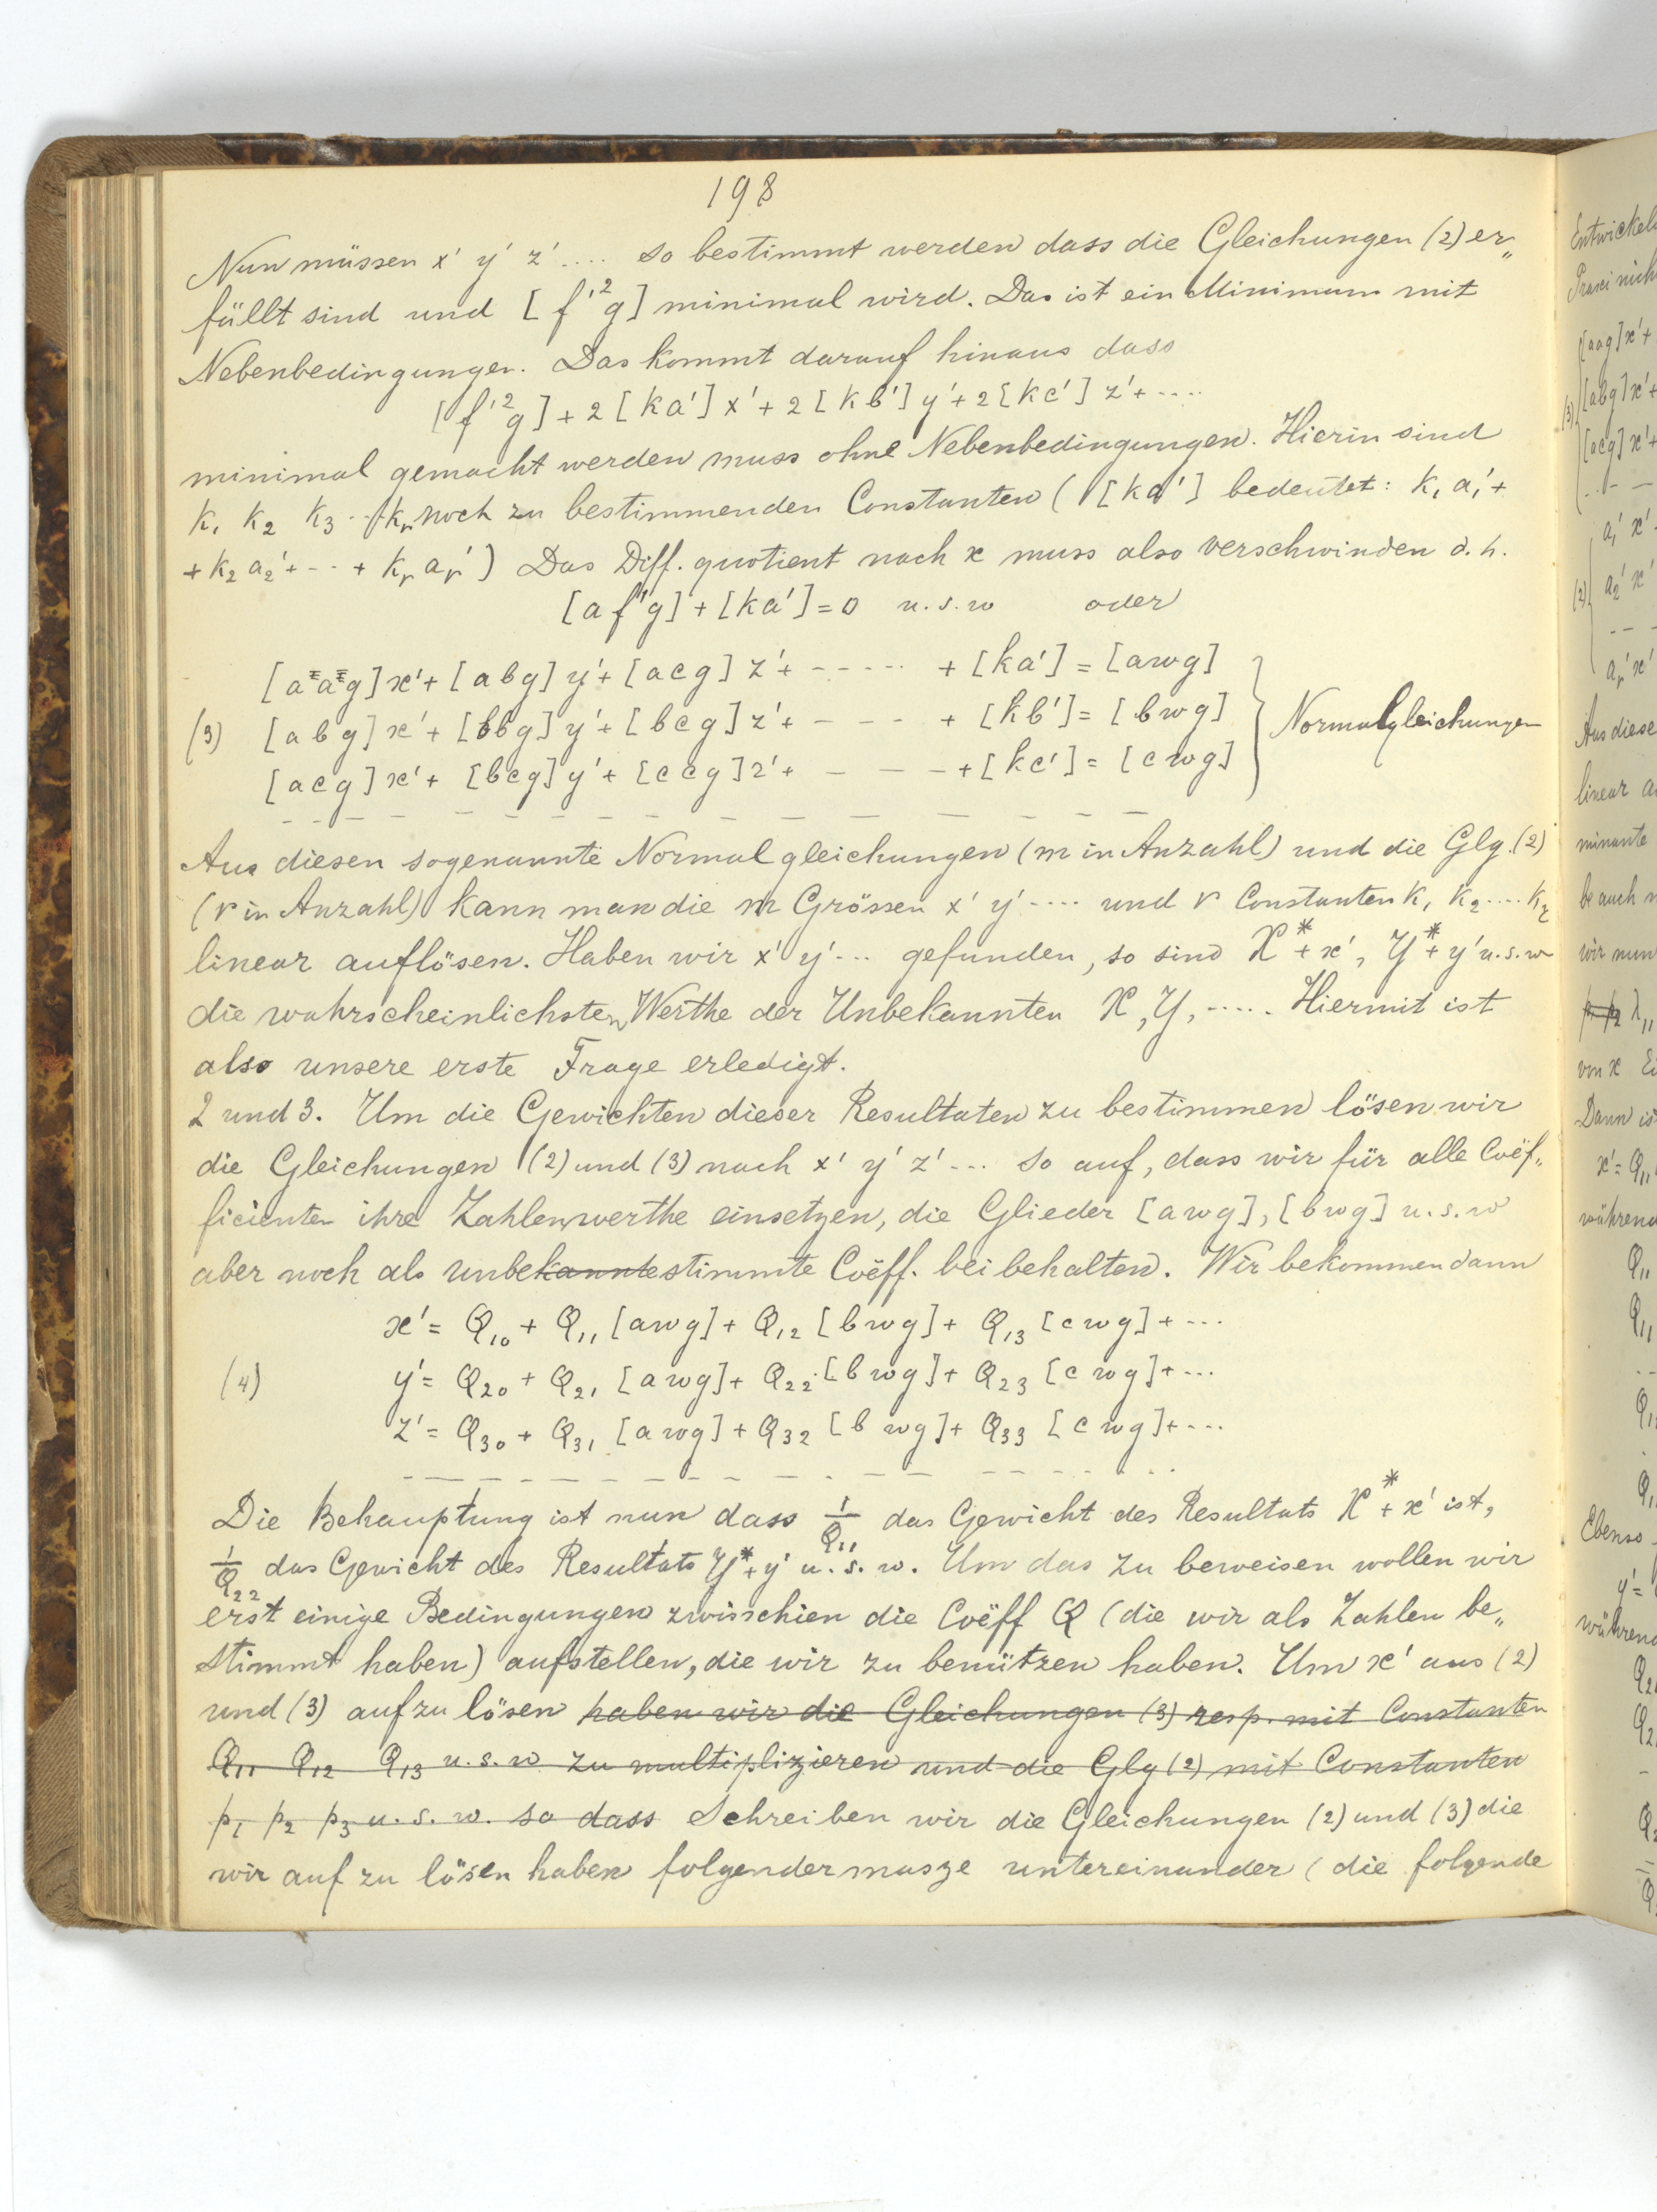 198
Nun müssen x' y' z' .... so bestimmt werden dass die Gleichungen (2) er„
füllt sind und [f'²g] minimal wird. Das ist ein Minimum mit
Nebenbedingungen. Das kommt darauf hinaus dass
[f'²g] + 2[ka']x' + 2[kb']y' + 2[kc']z' + ....
minimal gemacht werden muss ohne Nebenbedingungen. Hierin sind
k₁ k₂ k₃ ... kᵣ noch zu bestimmenden Constanten ([ka'] bedeutet: k₁a₁' +
+ k₂a₂' + --- + kᵣaᵣ') Das Diff. quotient nach x muss also verschwinden d.h.
[af'g] + [ka'] = 0 u.s.w oder
[aag]x' + [abg]y' + [acg]z' + ----- + [ka'] = [awg]
(3) [abg]x' + [bbg]y' + [bcg]z' + ---- + [kb'] = [bwg] Normalgleichungen
[acg]x' + [bcg]y' + [ccg]z' + ---- + [kc'] = [cwg]
Aus diesen sogenannte Normalgleichungen (m in Anzahl) und die Glg. (2)
(r in Anzahl) kann man die m Grössen x' y' ---- und r Constanten k₁ k₂ .... kᵣ
linear auflösen. Haben wir x' y' --- gefunden, so sind X* + x', Y* + y' u.s.w
die wahrscheinlichsten Werthe der Unbekannten X, Y, ..... Hiermit ist
also unsere erste Frage erledigt.
2 und 3. Um die Gewichten dieser Resultaten zu bestimmen lösen wir
die Gleichungen (2) und (3) nach x' y' z' --- so auf, dass wir für alle Coëf„
ficienten ihre Zahlenwerthe einsetzen, die Glieder [awg], [bwg] u.s.w
aber noch als unbekanntestimmte Coëff. bei behalten. Wir bekommen dann
x' = Q₁₀ + Q₁₁[awg] + Q₁₂[bwg] + Q₁₃[cwg] + ...
(4) y' = Q₂₀ + Q₂₁[awg] + Q₂₂[bwg] + Q₂₃[cwg] + ...
z' = Q₃₀ + Q₃₁[awg] + Q₃₂[bwg] + Q₃₃[cwg] + ...
Die Behauptung ist nun dass 1/Q₁₁ das Gewicht des Resultats X* + x' ist,
1/Q₂₂ das Gewicht des Resultats Y* + y' u.s.w. Um das zu beweisen wollen wir
erst einige Bedingungen zwisschien die Coëff Q (die wir als Zahlen be„
stimmt haben) aufstellen, die wir zu benützen haben. Um x' aus (2)
und (3) aufzulösen haben wir die Gleichungen (3) resp. mit Constanten
Q₁₁ Q₁₂ Q₁₃ u.s.w zu multiplizieren und die Glg (2) mit Constanten
p₁ p₂ p₃ u.s.w. so dass Schreiben wir die Gleichungen (2) und (3) die
wir auf zu lösen haben folgendermasze untereinander (die folgende
Entwickel
[aag]x' +
(3) [abg]x' +
[acg]x' +
a₁'x'
(2) a₂'x'
aᵣ'x'
Aus diese
linear a
minante
be auch n
wir nun
von x Ei
Dann ist
x' = Q₁₁
während
Q₁₁
Q₁₁
Ebenso
y' =
während